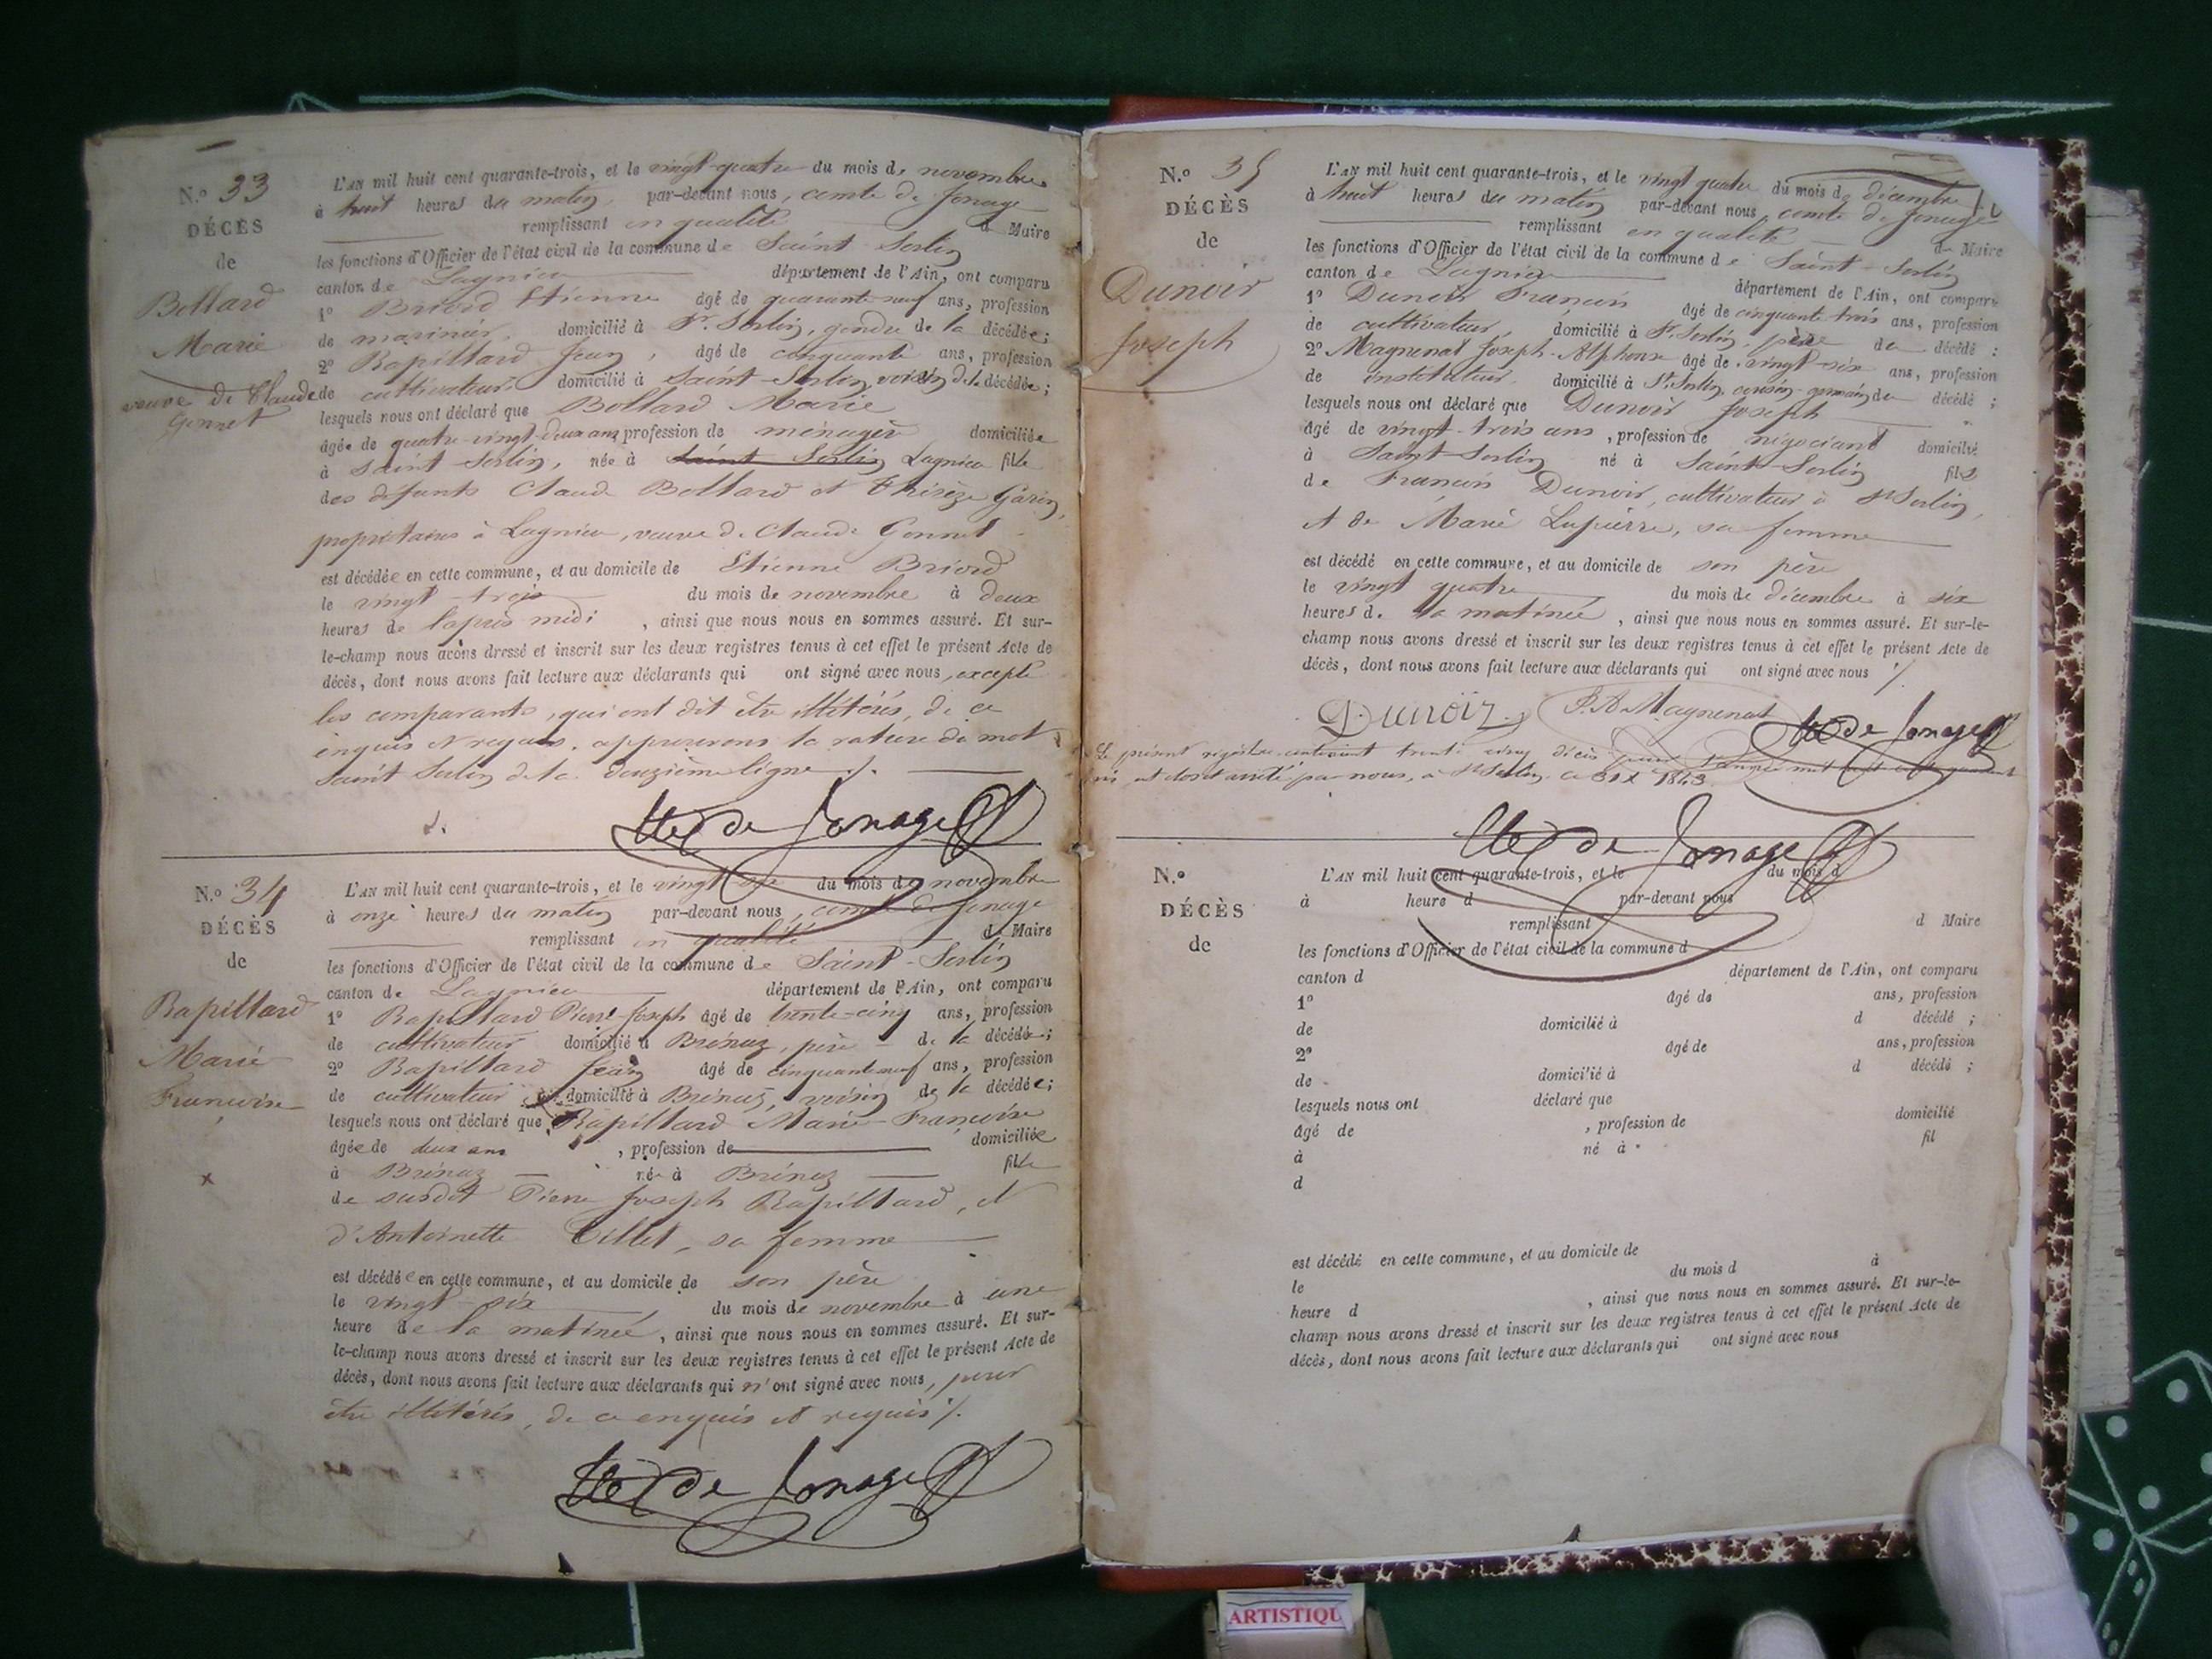 N.º 33
DÉCÈS
de
Bollard
Marie
veuve de Claude
Gonnet
L'AN mil huit cent quarante-trois, et le vingt-quatre du mois de novembre
à huit heures du matin, par-devant nous, comte de Jonage
remplissant en qualité de Maire
les fonctions d'Officier de l'état civil de la commune de Saint-Sorlin
canton de Lagnieu département de l'Ain, ont comparu
1º Briord Etienne âgé de quarante-neuf ans, profession
de marinier, domicilié à St. Sorlin, gendre de la décédée;
2º Bapillard Jean, âgé de cinquante ans, profession
de cultivateur, domicilié à Saint-Sorlin, voisin de la décédée;
lesquels nous ont déclaré que Bollard Marie
âgée de quatre-vingt-deux ans profession de ménagère domiciliée
à Saint-Sorlin, née à Saint Sorlin Lagnieu fille
des défunts Claude Bollard et Thérèze Garin,
propriétaires à Lagnieu, veuve de Claude Gonnet
est décédée en cette commune, et au domicile de Etienne Briord
le vingt-trois du mois de novembre à deux
heures de l'après midi, ainsi que nous nous en sommes assuré. Et sur-
le-champ nous avons dressé et inscrit sur les deux registres tenus à cet effet le présent Acte de
décès, dont nous avons fait lecture aux déclarants qui ont signé avec nous, excepté
les comparants, qui ont dit être illitérés, de ce
enquis et requis. approuvons la rature du mot
Saint Sorlin de la douzième ligne ./.
Cte de Jonage
N.º 34
DÉCÈS
de
Bapillard
Marie
Françoise
x
L'AN mil huit cent quarante-trois, et le vingt-six du mois de novembre
à onze heures du matin par-devant nous, comte de Jonage
remplissant en qualité de Maire
les fonctions d'Officier de l'état civil de la commune de Saint-Sorlin
canton de Lagnieu département de l'Ain, ont comparu
1º Bapillard Pierre-Joseph âgé de trente-cinq ans, profession
de cultivateur domicilié à Brénaz, père de la décédée;
2º Bapillard Jean âgé de cinquante neuf ans, profession
de cultivateur, domicilié à Brénaz, voisin de la décédée;
lesquels nous ont déclaré que Bapillard Marie-Françoise
âgée de deux ans, profession de domiciliée
à Brénaz née à Brénaz fille
de susdit Pierre Joseph Bapillard, et
d'Antoinette Tillet, sa femme
est décédée en cette commune, et au domicile de son père
le vingt-six du mois de novembre à une
heure de la matinée, ainsi que nous nous en sommes assuré. Et sur-
le-champ nous avons dressé et inscrit sur les deux registres tenus à cet effet le présent Acte de
décès, dont nous avons fait lecture aux déclarants qui n'ont signé avec nous, pour
être illitérés, de ce enquis et requis ./.
Cte de Jonage
N.º 35
DÉCÈS
de
Dunoir
Joseph
L'AN mil huit cent quarante-trois, et le vingt quatre du mois de décembre
à huit heures du matin par-devant nous, comte de Jonage
remplissant en qualité de Maire
les fonctions d'Officier de l'état civil de la commune de Saint-Sorlin
canton de Lagnieu département de l'Ain, ont comparu
1º Dunoir François âgé de cinquante trois ans, profession
de cultivateur, domicilié à St. Sorlin, père du décédé;
2º Magnenat Joseph-Alphonse âgé de vingt-six ans, profession
de instituteur, domicilié à St. Sorlin, cousin-germain du décédé;
lesquels nous ont déclaré que Dunoir Joseph
âgé de vingt-trois ans, profession de négociant domicilié
à Saint-Sorlin né à Saint-Sorlin fils
de François Dunoir, cultivateur à St Sorlin,
et de Marie Lapierre, sa femme
est décédé en cette commune, et au domicile de son père
le vingt quatre du mois de décembre à six
heures de la matinée, ainsi que nous nous en sommes assuré. Et sur-le-
champ nous avons dressé et inscrit sur les deux registres tenus à cet effet le présent Acte de
décès, dont nous avons fait lecture aux déclarants qui ont signé avec nous ./.
Dunoir J. A. Magnenat Cte de Jonage
Le présent registre contenant trente cinq décès pour l'année mil huit cent quarante
trois est clos et arrêté par nous, à St Sorlin ce 31 Xe 1843.
Cte de Jonage
N.º
DÉCÈS
de
L'AN mil huit cent quarante-trois, et le du mois d
à heure d par-devant nous
remplissant d Maire
les fonctions d'Officier de l'état civil de la commune d
canton d département de l'Ain, ont comparu
1º âgé de ans, profession
de domicilié à d décédé;
2º âgé de ans, profession
de domicilié à d décédé;
lesquels nous ont déclaré que
âgé de , profession de domicilié
à né à fil
d
est décédé en cette commune, et au domicile de
le du mois d à
heure d , ainsi que nous nous en sommes assuré. Et sur-le-
champ nous avons dressé et inscrit sur les deux registres tenus à cet effet le présent Acte de
décès, dont nous avons fait lecture aux déclarants qui ont signé avec nous
ARTISTIQU